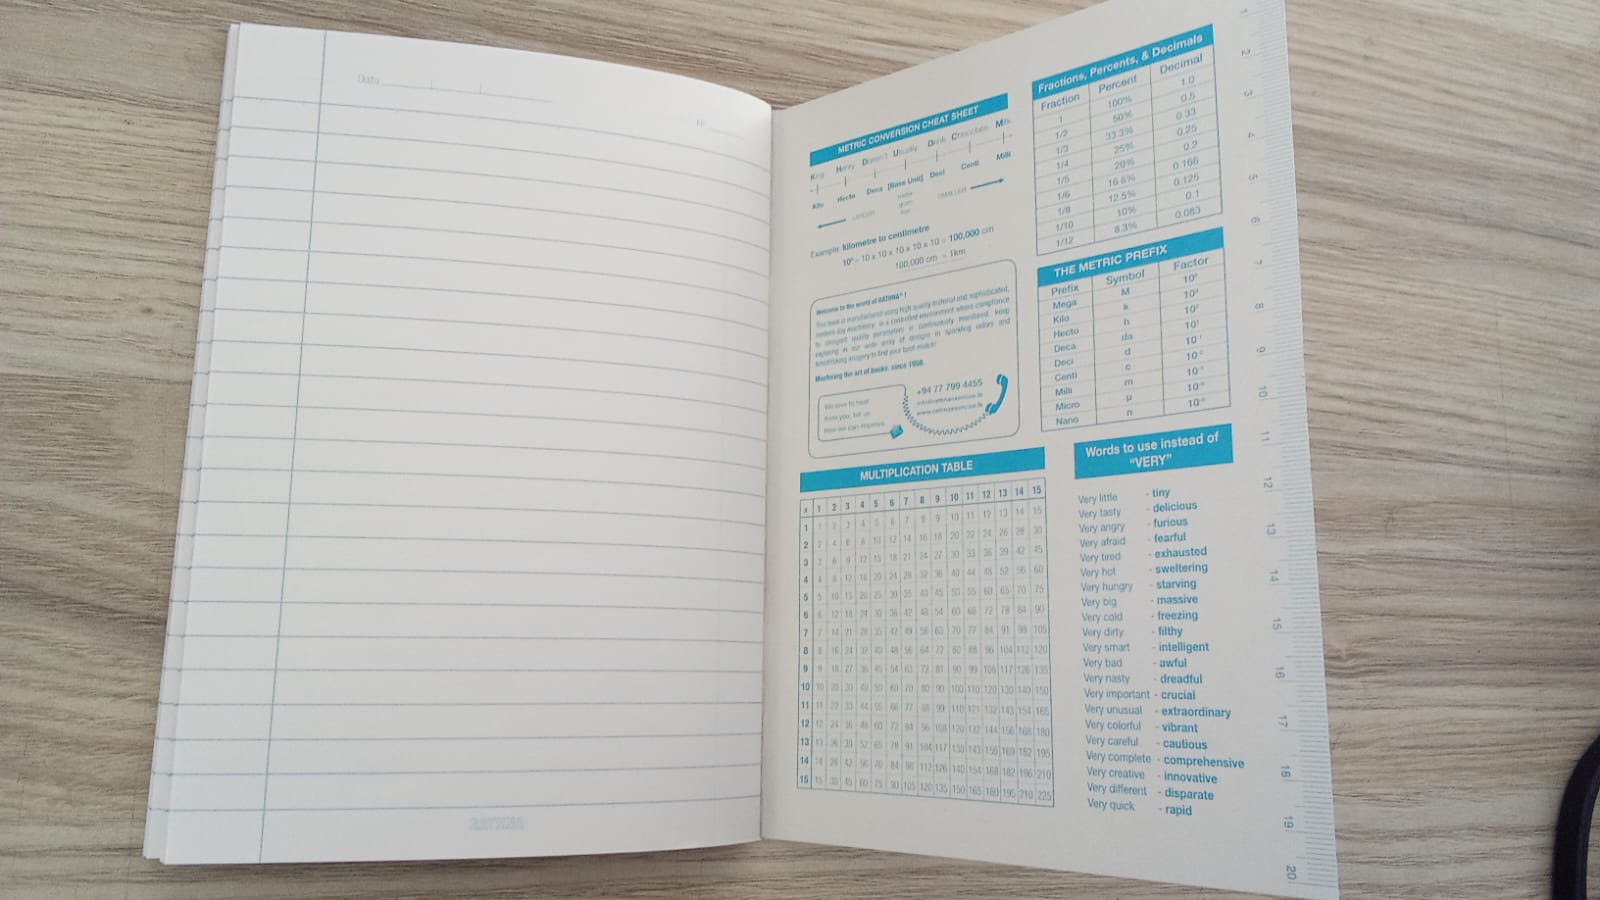 Date
№
RATHNA
METRIC CONVERSION CHEAT SHEET
King Henry Doesn't Usually Drink Chocolate Milk
Kilo Hecto Deca [Base Unit] Desi Centi Milli
metre
gram
liter
LARGER
SMALLER
Example: kilometre to centimetre
10⁵ = 10 x 10 x 10 x 10 x 10 = 100,000 cm
100,000 cm = 1km
Welcome to the world of RATHNA !
This book is manufactured using high quality material and sophisticated,
modern day machinery in a controlled environment where compliance
to stringent quality parameters is continuously monitored. keep
exploring in our wide array of designs in sparkling colors and
breathtaking imagery to find your best-match!
Mastering the art of books, since 1958.
We love to hear
from you, tell us
How we can improve.
+94 77 799 4455
Fractions, Percents, & Decimals
Fraction Percent Decimal
1 100% 1.0
1/2 50% 0.5
1/3 33.3% 0.33
1/4 25% 0.25
1/5 20% 0.2
1/6 16.6% 0.166
1/8 12.5% 0.125
1/10 10% 0.1
1/12 8.3% 0.083
THE METRIC PREFIX
Prefix Symbol Factor
Mega M 10
Kilo k 10
Hecto h 10
Deca da 10
Deci d 10
Centi c 10
Milli m 10
Micro μ 10
Nano n 10
MULTIPLICATION TABLE
x 1 2 3 4 5 6 7 8 9 10 11 12 13 14 15
1 1 2 3 4 5 6 7 8 9 10 11 12 13 14 15
2 2 4 6 8 10 12 14 16 18 20 22 24 26 28 30
3 3 6 9 12 15 18 21 24 27 30 33 36 39 42 45
4 4 8 12 16 20 24 28 32 36 40 44 48 52 56 60
5 5 10 15 20 25 30 35 40 45 50 55 60 65 70 75
6 6 12 18 24 30 36 42 48 54 60 66 72 78 84 90
7 7 14 21 28 35 42 49 56 63 70 77 84 91 98 105
8 8 16 24 32 40 48 56 64 72 80 88 96 104 112 120
9 9 18 27 36 45 54 63 72 81 90 99 108 117 126 135
10 10 20 30 40 50 60 70 80 90 100 110 120 130 140 150
11 11 22 33 44 55 66 77 88 99 110 121 132 143 154 165
12 12 24 36 48 60 72 84 96 108 120 132 144 156 168 180
13 13 26 39 52 65 78 91 104 117 130 143 156 169 182 195
14 14 28 42 56 70 84 98 112 126 140 154 168 182 196 210
15 15 30 45 60 75 90 105 120 135 150 165 180 195 210 225
Words to use instead of
“VERY”
Very little - tiny
Very tasty - delicious
Very angry - furious
Very afraid - fearful
Very tired - exhausted
Very hot - sweltering
Very hungry - starving
Very big - massive
Very cold - freezing
Very dirty - filthy
Very smart - intelligent
Very bad - awful
Very nasty - dreadful
Very important - crucial
Very unusual - extraordinary
Very colorful - vibrant
Very careful - cautious
Very complete - comprehensive
Very creative - innovative
Very different - disparate
Very quick - rapid
1
2
3
4
5
6
7
8
9
10
11
12
13
14
15
16
17
18
19
20